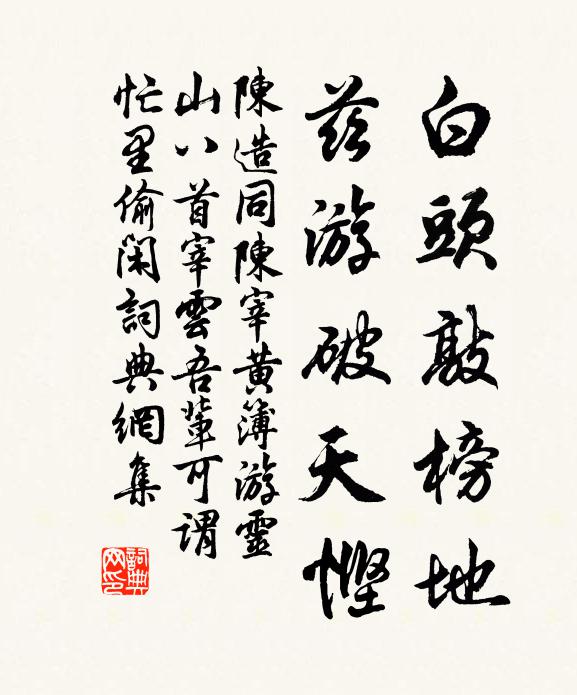 白頭敲榜地
茲游破天慳
陳造同陳宰黃簿游靈
山八首宰雲吾輩可謂
忙里偷閑詞典網集
詞典網印